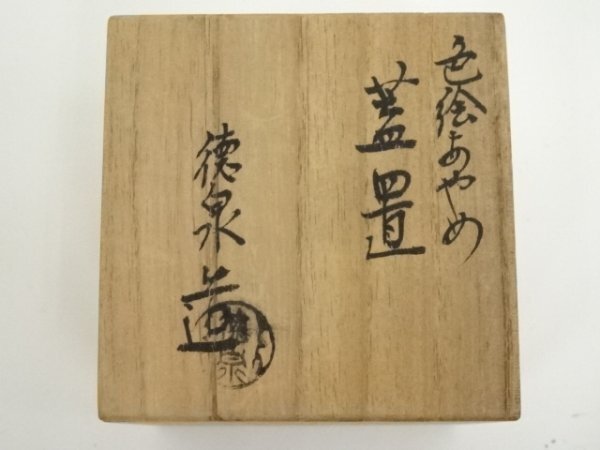 色絵あやめ
蓋置
徳泉造